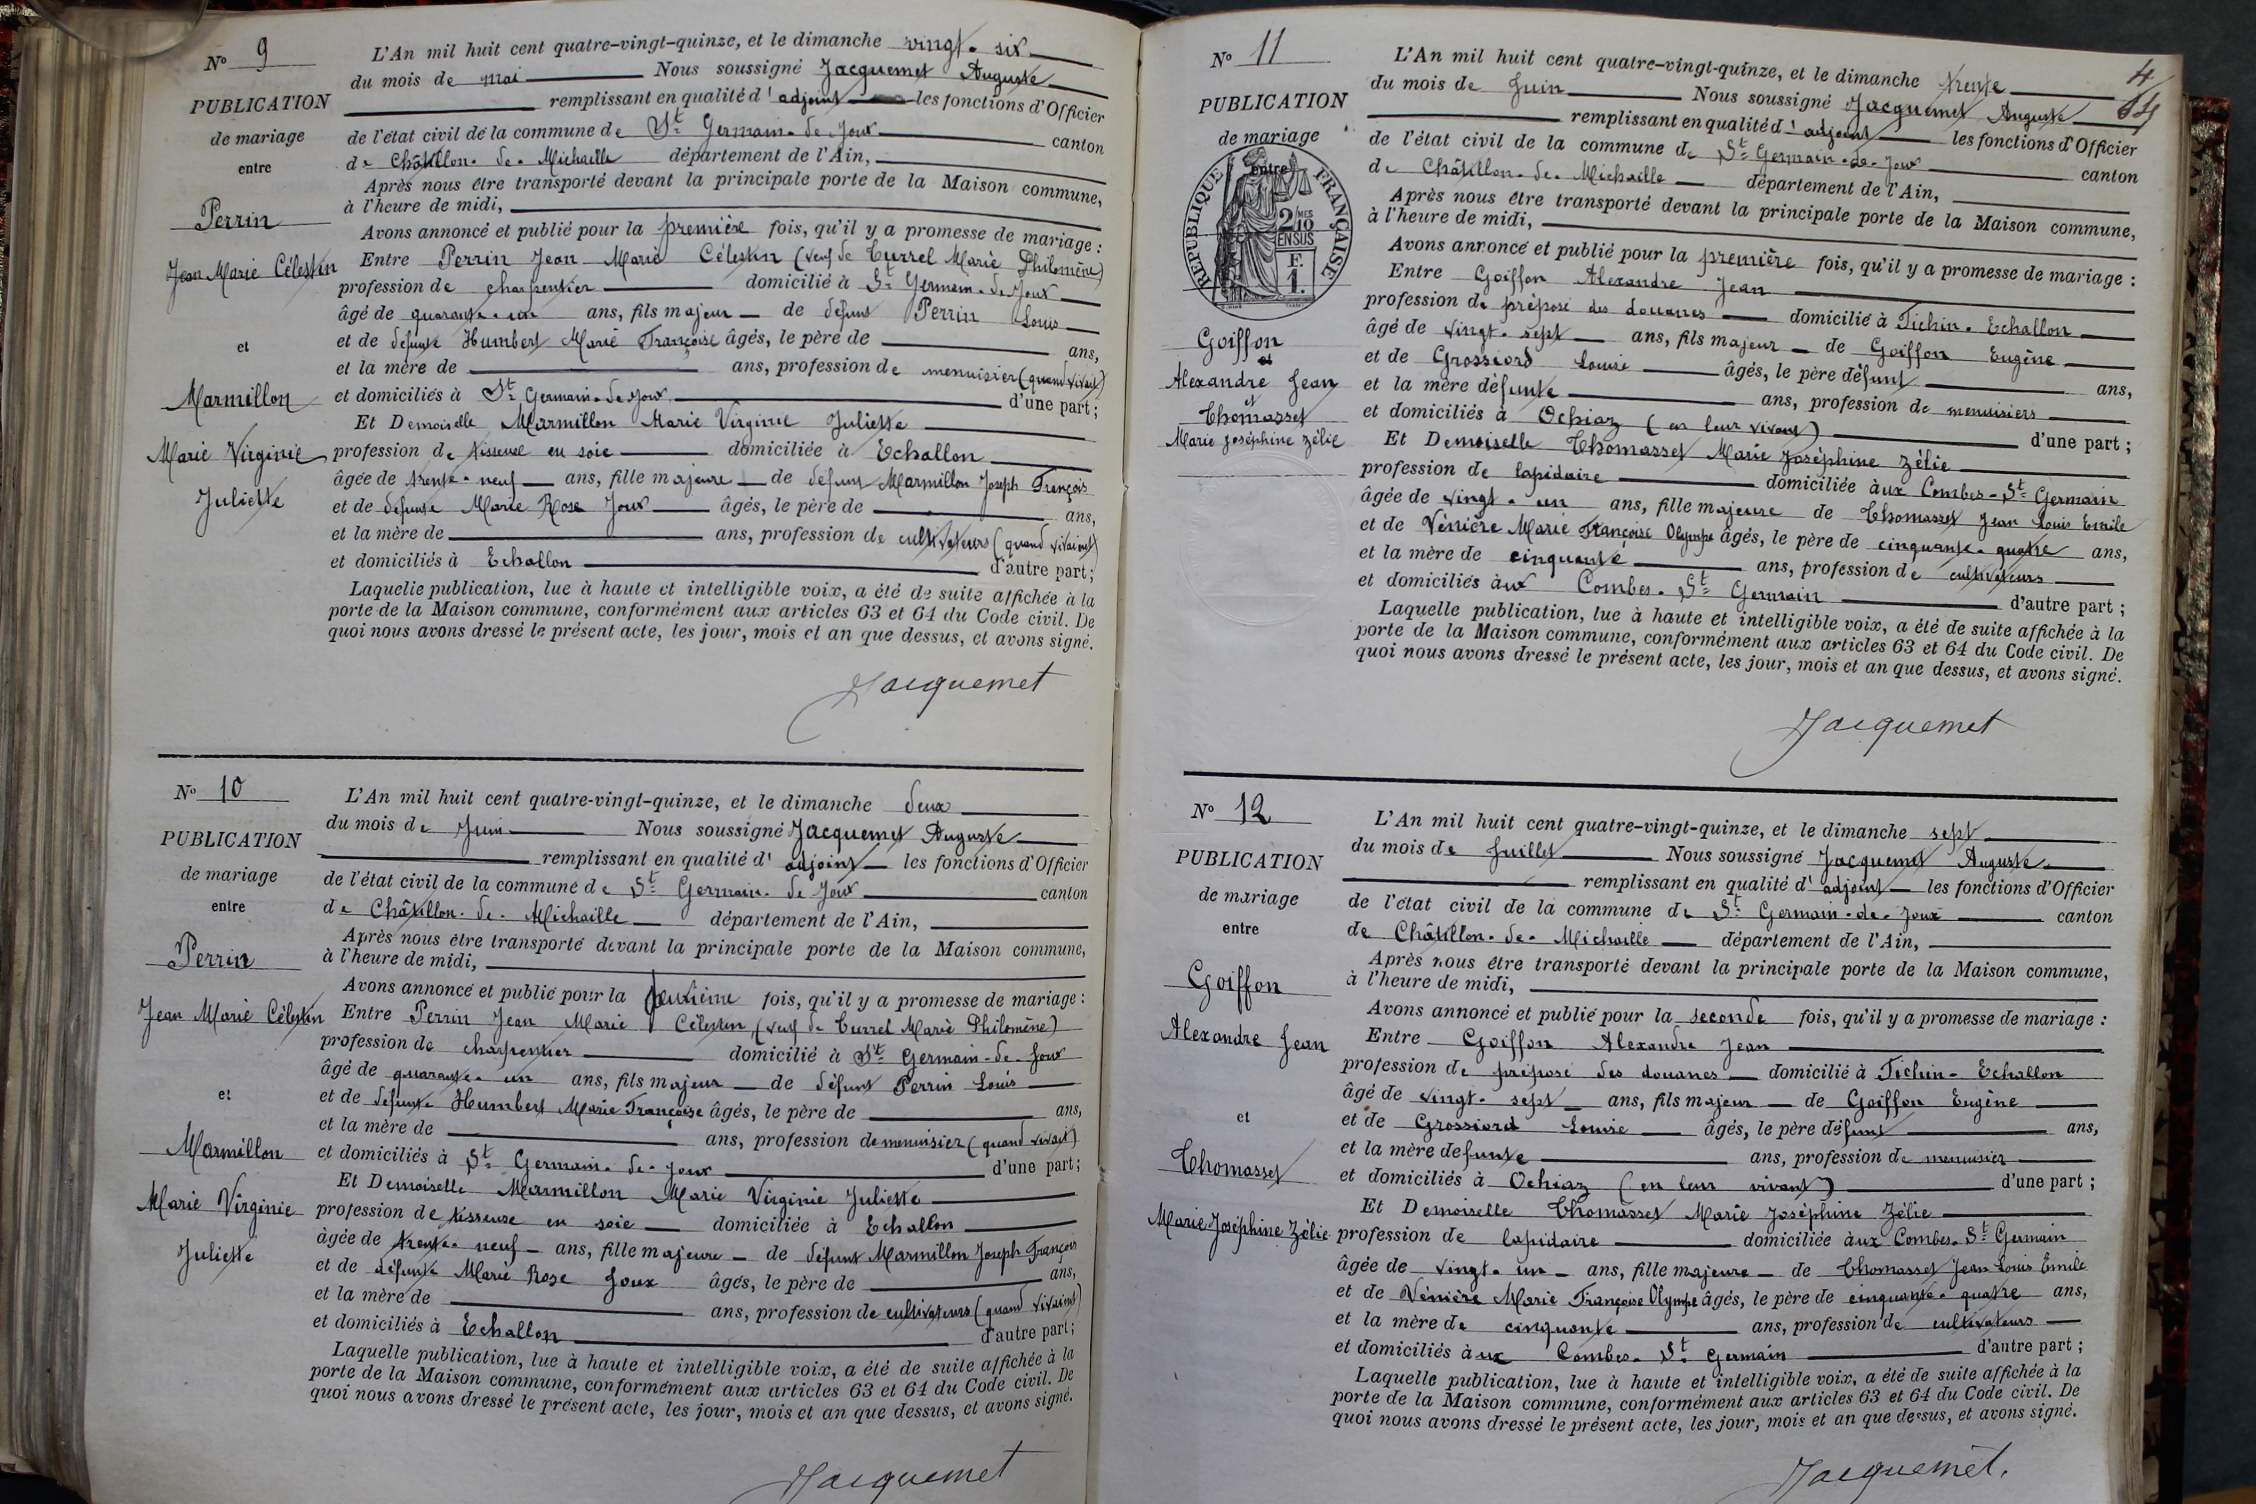 N° 9
PUBLICATION
de mariage
entre
Perrin
Jean Marie Célestin
et
Marmillon
Marie Virginie
Juliette
L'An mil huit cent quatre-vingt-quinze, et le dimanche vingt-six
du mois de mai Nous soussigné Jacquemet Auguste
remplissant en qualité d'adjoint les fonctions d'Officier
de l'état civil de la commune de St Germain-de-Joux canton
de Châtillon-de-Michaille département de l'Ain,
Après nous être transporté devant la principale porte de la Maison commune,
à l'heure de midi,
Avons annoncé et publié pour la première fois, qu'il y a promesse de mariage :
Entre Perrin Jean Marie Célestin (veuf de Turrel Marie Philomène)
profession de charpentier domicilié à St Germain-de-Joux
âgé de quarante-un ans, fils majeur de défunt Perrin Louis
et de défunte Humbert Marie Françoise âgés, le père de ans,
et la mère de ans, profession de menuisier (quand vivait)
et domiciliés à St Germain-de-Joux d'une part ;
Et Demoiselle Marmillon Marie Virginie Juliette
profession de tisseuse en soie domiciliée à Echallon
âgée de trente-neuf ans, fille majeure de défunt Marmillon Joseph François
et de défunte Marie Rose Joux âgés, le père de ans,
et la mère de ans, profession de cultivateurs (quand vivaient)
et domiciliés à Echallon d'autre part ;
Laquelle publication, lue à haute et intelligible voix, a été de suite affichée à la
porte de la Maison commune, conformément aux articles 63 et 64 du Code civil. De
quoi nous avons dressé le présent acte, les jour, mois et an que dessus, et avons signé.
Jacquemet
N° 10
PUBLICATION
de mariage
entre
Perrin
Jean Marie Célestin
et
Marmillon
Marie Virginie
Juliette
L'An mil huit cent quatre-vingt-quinze, et le dimanche deux
du mois de Juin Nous soussigné Jacquemet Auguste
remplissant en qualité d'adjoint les fonctions d'Officier
de l'état civil de la commune de St Germain-de-Joux canton
de Châtillon-de-Michaille département de l'Ain,
Après nous être transporté devant la principale porte de la Maison commune,
à l'heure de midi,
Avons annoncé et publié pour la deuxième fois, qu'il y a promesse de mariage :
Entre Perrin Jean Marie Célestin (veuf de Turrel Marie Philomène)
profession de charpentier domicilié à St Germain-de-Joux
âgé de quarante-un ans, fils majeur de défunt Perrin Louis
et de défunte Humbert Marie Françoise âgés, le père de ans,
et la mère de ans, profession de menuisier (quand vivait)
et domiciliés à St Germain-de-Joux d'une part ;
Et Demoiselle Marmillon Marie Virginie Juliette
profession de tisseuse en soie domiciliée à Echallon
âgée de trente-neuf ans, fille majeure de défunt Marmillon Joseph François
et de défunte Marie Rose Joux âgés, le père de ans,
et la mère de ans, profession de cultivateurs (quand vivaient)
et domiciliés à Echallon d'autre part ;
Laquelle publication, lue à haute et intelligible voix, a été de suite affichée à la
porte de la Maison commune, conformément aux articles 63 et 64 du Code civil. De
quoi nous avons dressé le présent acte, les jour, mois et an que dessus, et avons signé.
Jacquemet
4
N° 11
PUBLICATION
de mariage
entre
RÉPUBLIQUE FRANÇAISE
2 MES 10
EN SUS
F.
1.
Goiffon
Alexandre Jean
et
Thomasset
Marie Joséphine Zélie
L'An mil huit cent quatre-vingt-quinze, et le dimanche trente
du mois de Juin Nous soussigné Jacquemet Auguste
remplissant en qualité d'adjoint les fonctions d'Officier
de l'état civil de la commune de St Germain-de-Joux canton
de Châtillon-de-Michaille département de l'Ain,
Après nous être transporté devant la principale porte de la Maison commune,
à l'heure de midi,
Avons annoncé et publié pour la première fois, qu'il y a promesse de mariage :
Entre Goiffon Alexandre Jean
profession de préposé des douanes domicilié à Tichin-Echallon
âgé de vingt-sept ans, fils majeur de Goiffon Eugène
et de Grossiord Louise âgés, le père défunt ans,
et la mère défunte ans, profession de menuisiers
et domiciliés à Ochiaz (en leur vivant) d'une part ;
Et Demoiselle Thomasset Marie Joséphine Zélie
profession de lapidaire domiciliée aux Combes-St Germain
âgée de vingt-un ans, fille majeure de Thomasset Jean Louis Emile
et de Vénière Marie Françoise Olympe âgés, le père de cinquante-quatre ans,
et la mère de cinquante ans, profession de cultivateurs
et domiciliés aux Combes-St Germain d'autre part ;
Laquelle publication, lue à haute et intelligible voix, a été de suite affichée à la
porte de la Maison commune, conformément aux articles 63 et 64 du Code civil. De
quoi nous avons dressé le présent acte, les jour, mois et an que dessus, et avons signé.
Jacquemet
N° 12
PUBLICATION
de mariage
entre
Goiffon
Alexandre Jean
et
Thomasset
Marie Joséphine Zélie
L'An mil huit cent quatre-vingt-quinze, et le dimanche sept
du mois de Juillet Nous soussigné Jacquemet Auguste
remplissant en qualité d'adjoint les fonctions d'Officier
de l'état civil de la commune de St Germain-de-Joux canton
de Châtillon-de-Michaille département de l'Ain,
Après nous être transporté devant la principale porte de la Maison commune,
à l'heure de midi,
Avons annoncé et publié pour la seconde fois, qu'il y a promesse de mariage :
Entre Goiffon Alexandre Jean
profession de préposé des douanes domicilié à Tichin-Echallon
âgé de vingt-sept ans, fils majeur de Goiffon Eugène
et de Grossiord Louise âgés, le père défunt ans,
et la mère defunte ans, profession de menuisier
et domiciliés à Ochiaz (en leur vivant) d'une part ;
Et Demoiselle Thomasset Marie Joséphine Zélie
profession de lapidaire domiciliée aux Combes-St Germain
âgée de vingt-un ans, fille majeure de Thomasset Jean Louis Emile
et de Vénière Marie Françoise Olympe âgés, le père de cinquante-quatre ans,
et la mère de cinquante ans, profession de cultivateurs
et domiciliés aux Combes-St Germain d'autre part ;
Laquelle publication, lue à haute et intelligible voix, a été de suite affichée à la
porte de la Maison commune, conformément aux articles 63 et 64 du Code civil. De
quoi nous avons dressé le présent acte, les jour, mois et an que dessus, et avons signé.
Jacquemet.